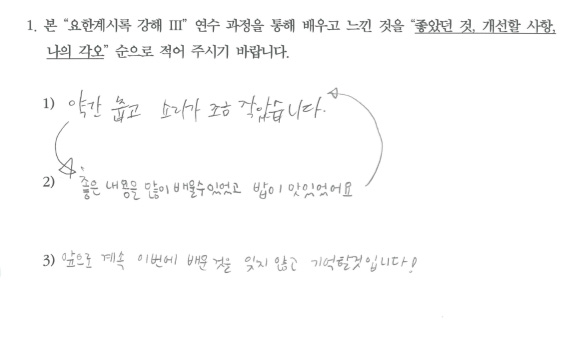 1. 본 “요한계시록 강해 III” 연수 과정을 통해 배우고 느낀 것을 “좋았던 것, 개선할 사항,
나의 각오” 순으로 적어 주시기 바랍니다.
1) 약간 춥고 소리가 조금 작았습니다.
2) 좋은 내용을 많이 배울수있었고 밥이 맛있었어요
3) 앞으로 계속 이번에 배운 것을 잊지 않고 기억할것입니다!